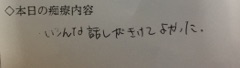 ◇本日の痴療内容
いろんな話しがきけてよかった。